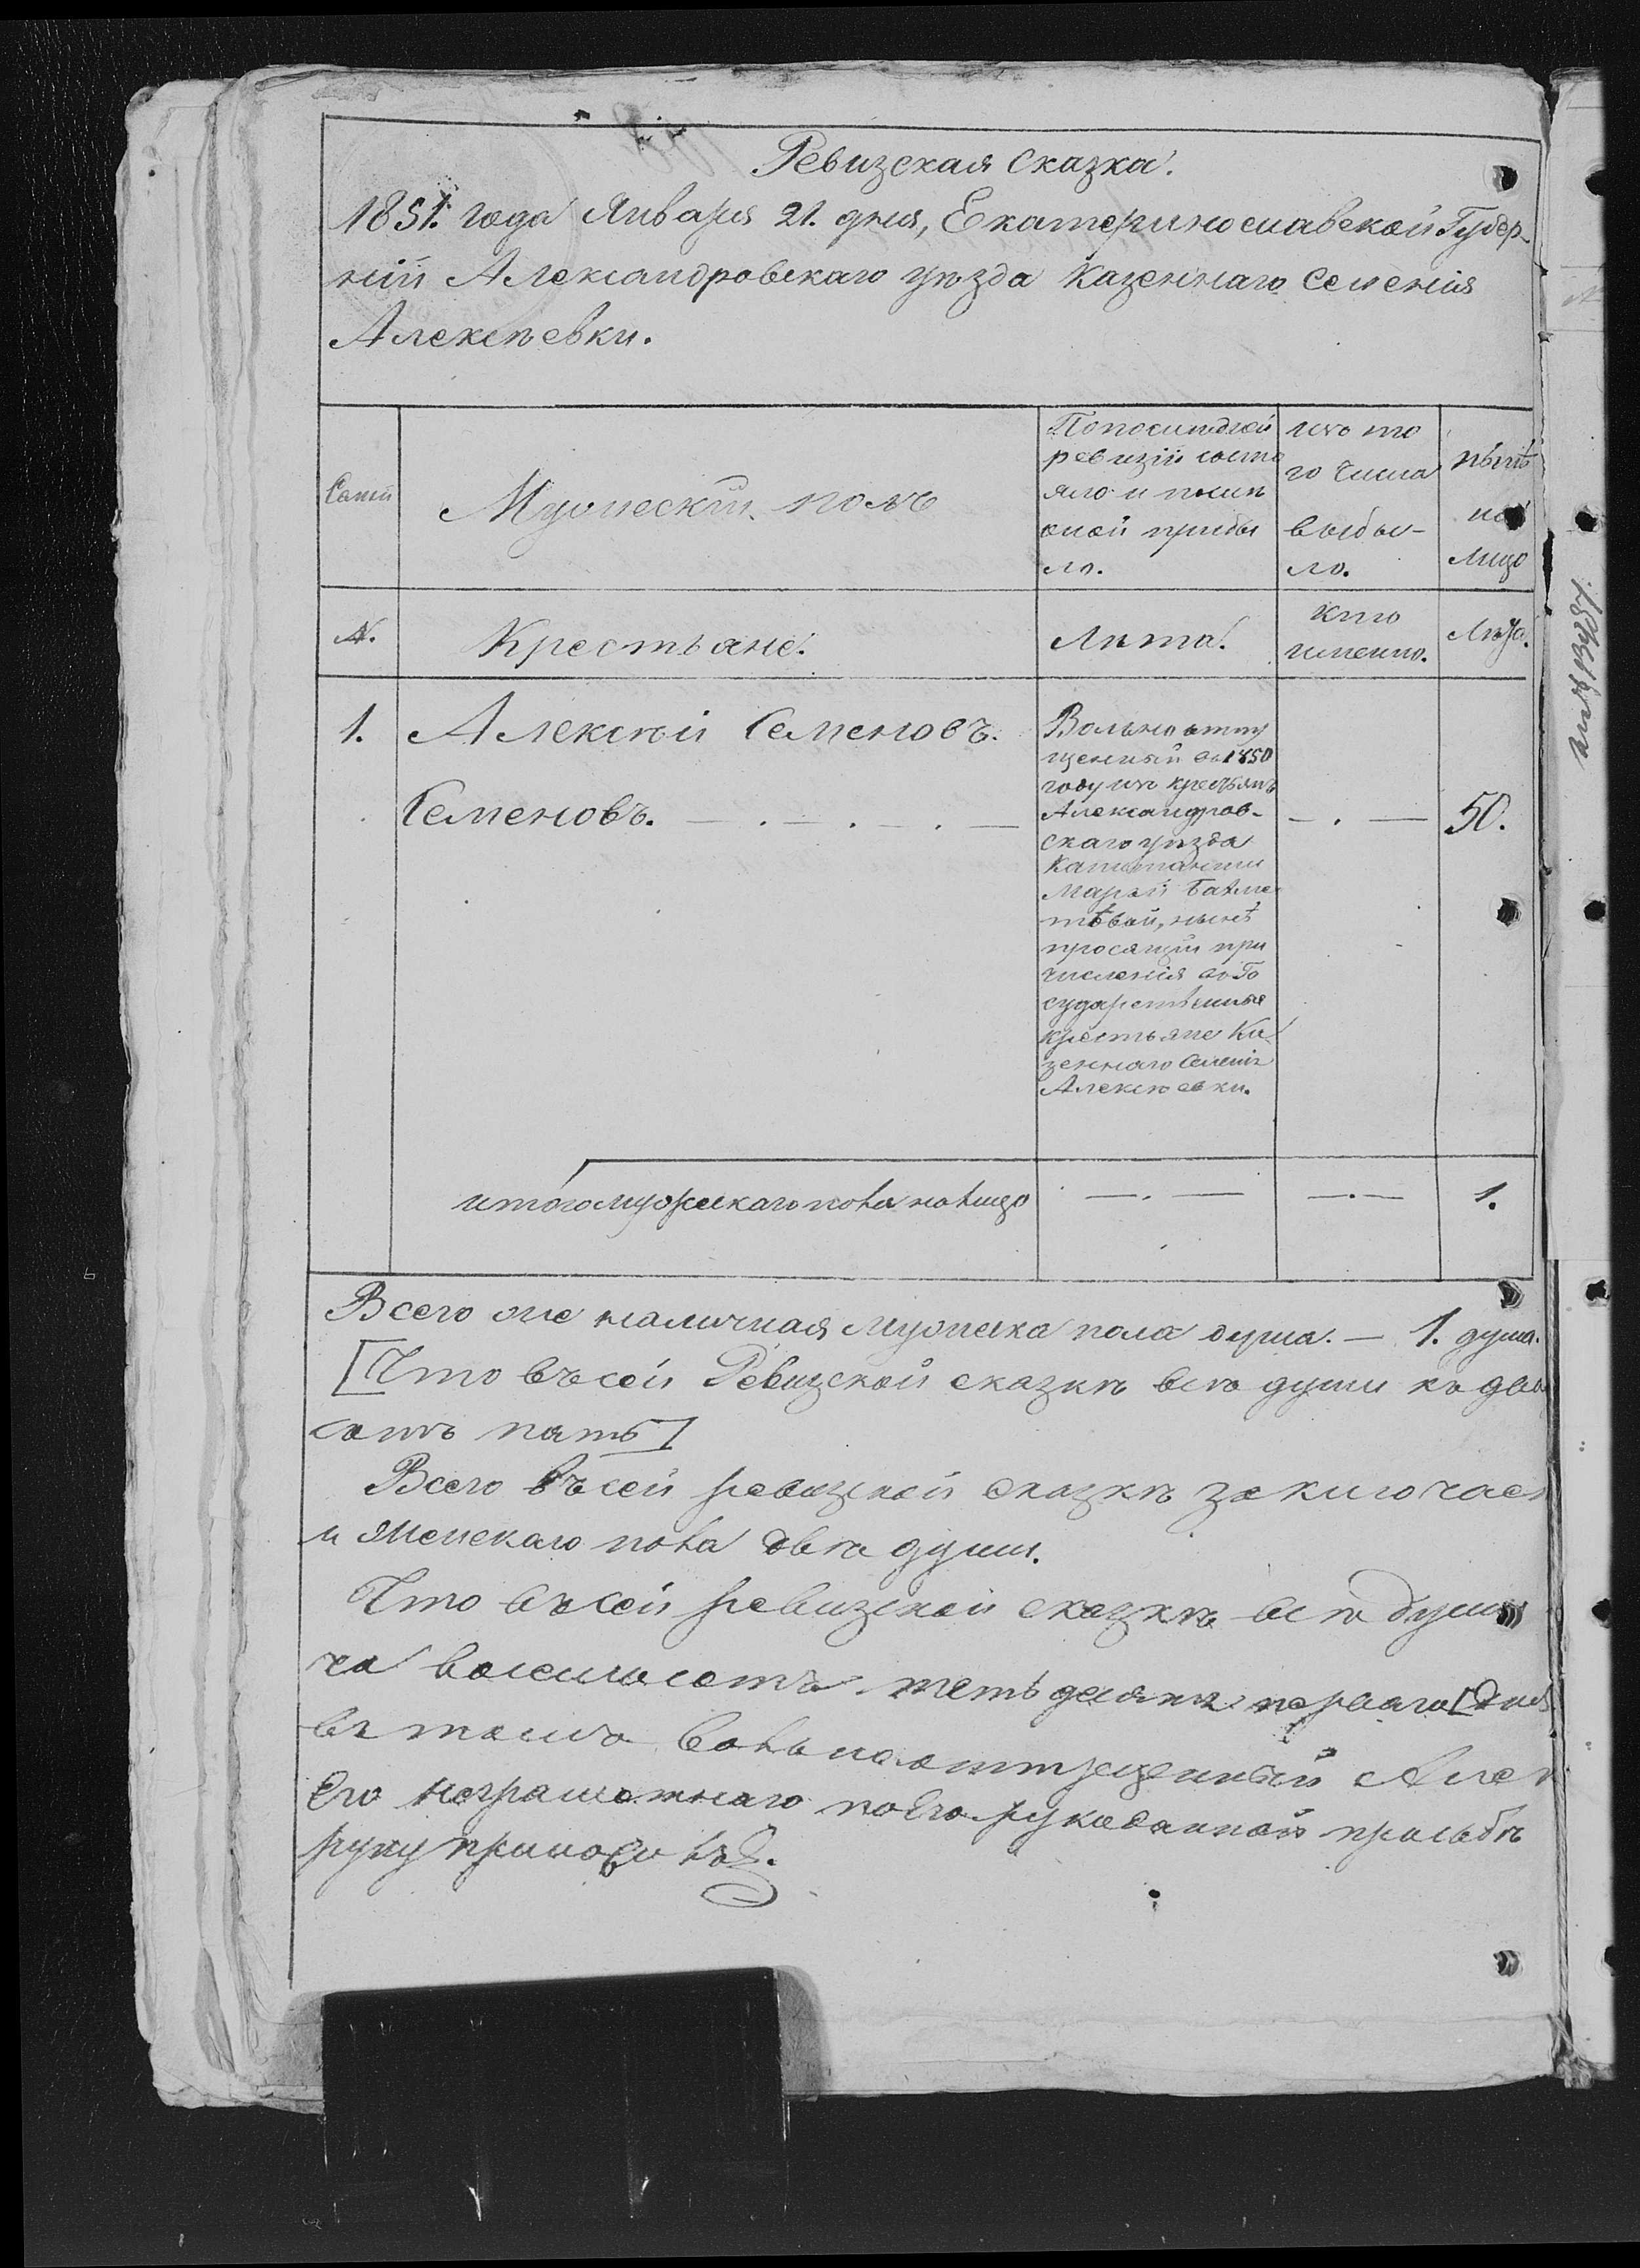 Ревизская сказка.
1851. года Января 21. дня, Екатеринославской Губер-
ніи Александровскаго уѣзда Казеннаго Селенія
Алексѣевки.
Семьи
Мужескій полъ
По послѣдней
ревизіи состо
яло и послѣ
оной прибы
ло.
изъ то
го числа
выбы-
ло.
нынѣ
на
лицо
№.
Крестьяне.
Лѣта.
кто
именно.
Лѣта.
1.
Алексѣй Семеновъ.
Семеновъ. — . — . — . —
Вольноотпу
щенный въ 1850
году изъ крестьянъ
Александров-
скаго уѣзда
Капитанши
Маріи Бахме
тѣвой, нынѣ
просящій при
численія въ Го
сударственные
крестьяне Ка
зеннаго Селенія
Алексѣевки.
— . —
50.
итого мужескаго пола на лицо
— . —
— . —
1.
Всего же наличная мужеска пола душа. — 1. душа.
[Что въ сей Ревизской сказкѣ всѣ души къ два
сотъ пять]
Всего въ сей ревизской сказкѣ заключает
и женскаго пола двѣ души.
Что въ сей ревизской сказкѣ всѣ души
ча восемьсотъ пять десятъ перваго
въ томъ вольноотпущенный Алек
Его неграмотнаго по Его рукоданной прозьбѣ
руку приложилъ.